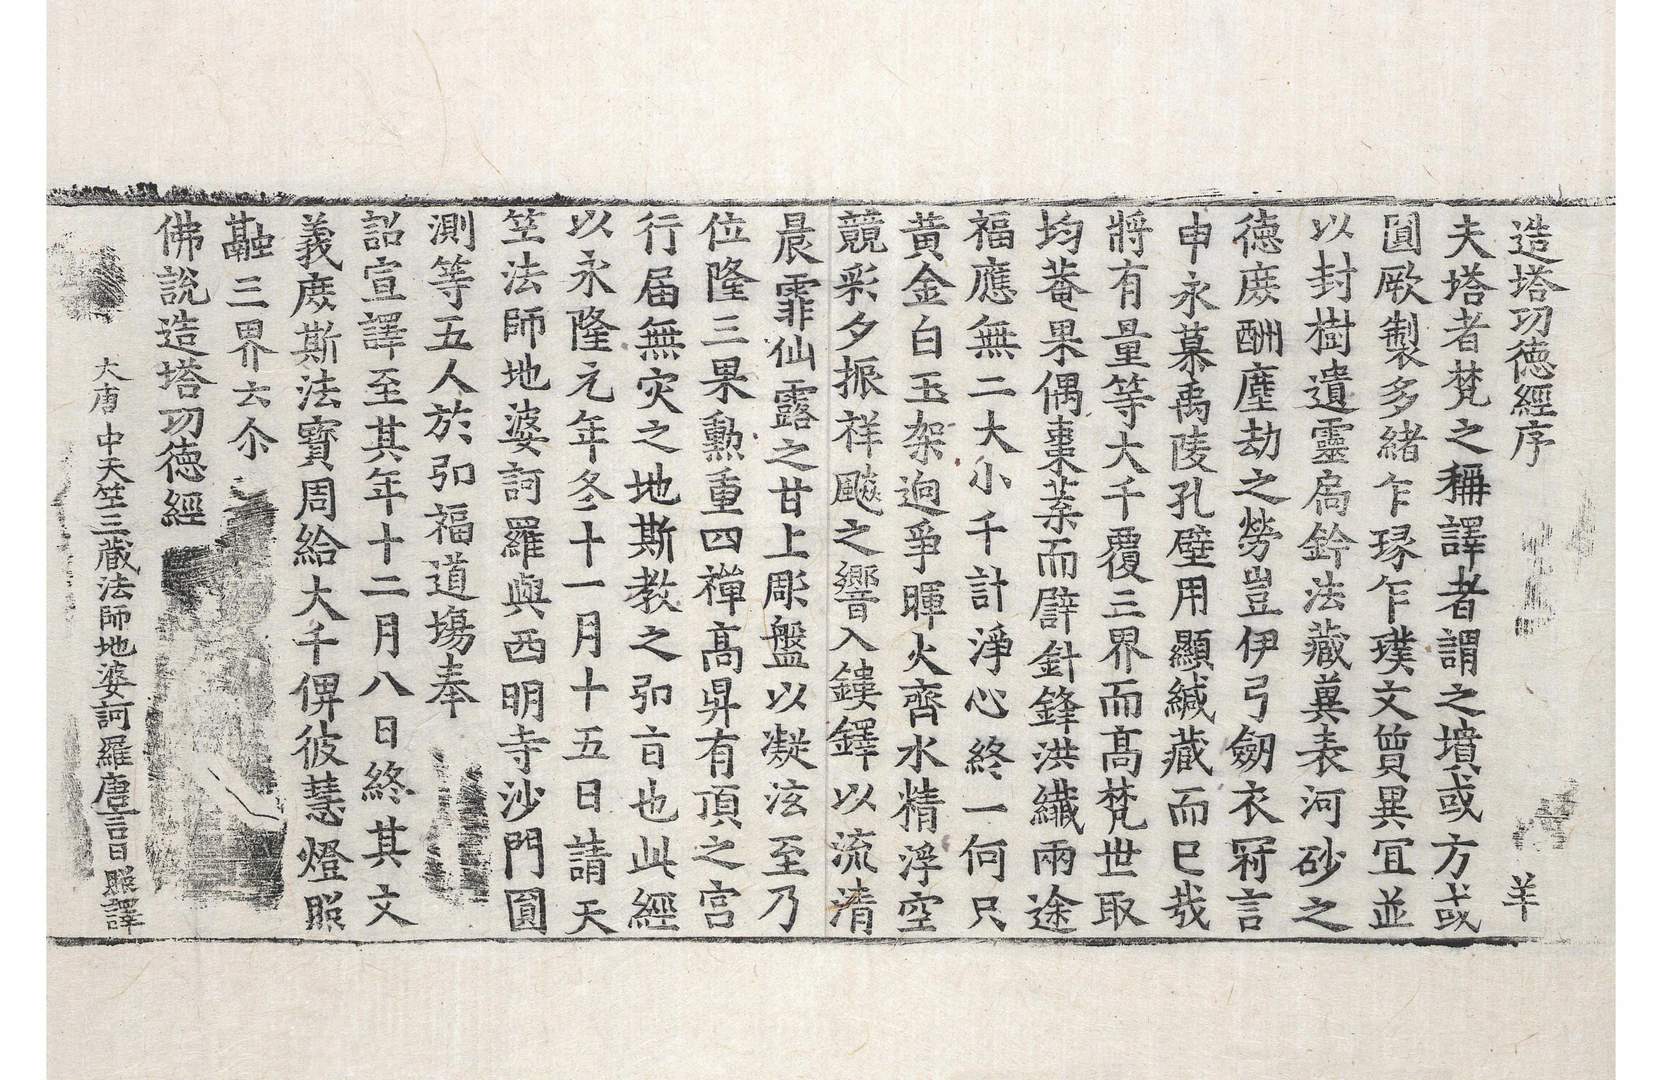 造塔功德經序 羊
夫塔者梵之稱譯者謂之墳或方或
圓厥製多緒乍琢乍璞文質異宜並
以封樹遺靈扃鈐法藏冀表河砂之
德庶酬塵劫之勞豈伊弓劒衣冠言
申永慕禹陵孔壁用顯緘藏而已哉
將有量等大千覆三界而高梵世取
均菴果偶棗葉而辟針鋒洪纖兩途
福應無二大小千計淨心終一何只
黃金白玉架逈爭暉火齊水精浮空
競彩夕振祥飈之響入鏤鐸以流清
晨霏仙露之甘上彫盤以凝泫至乃
位隆三果勳重四禪高昇有頂之宮
行届無灾之地斯教之弘旨也此經
以永隆元年冬十一月十五日請天
竺法師地婆訶羅與西明寺沙門圓
測等五人於弘福道場奉
詔宣譯至其年十二月八日終其文
義庶斯法寶周給大千俾彼慧燈照
融三界云尒
佛說造塔功德經
大唐 中天竺三藏法師地婆訶羅唐言日照譯